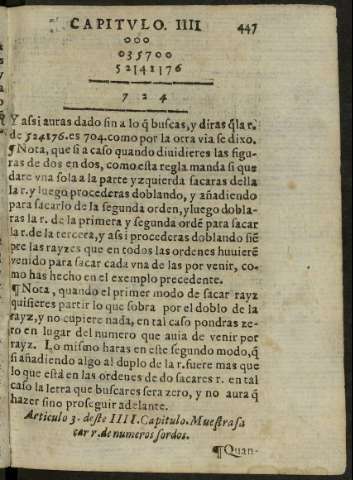 CAPITVLO. IIII 447
000
035700
52|41|76
7 2 4
Y assi auras dado fin a lo q̃ buscas, y diras q̃ la r.
de 524176. es 704. como por la otra via se dixo.
¶Nota, que si a caso quando diuidieres las figu-
ras de dos en dos, como esta regla manda si que
dare vna sola a la parte yzquierda sacaras della
la r. y luego procederas doblando, y añadiendo
para sacarlo de la segunda orden, y luego dobla-
ras la r. de la primera y segunda ordẽ para sacar
la r. de la tercera, y assi procederas doblando siẽ
pre las rayzes que en todos las ordenes huuierẽ
venido para sacar cada vna de las por venir, co-
mo has hecho en el exemplo precedente.
¶Nota, quando el primer modo de sacar rayz
quisieres partir lo que sobra por el doblo de la
rayz, y no cupiere nada, en tal caso pondras ze-
ro en lugar del numero que auia de venir por
rayz. Lo mismo haras en este segundo modo, q̃
si añadiendo algo al duplo de la r. fuere mas que
lo que está en las ordenes de do sacares r. en tal
caso la letra que buscares sera zero, y no aura q̃
hazer sino proseguir adelante.
Articulo 3. deste IIII. Capitulo. Muestra sa
car r. de numeros sordos.
¶Quan-